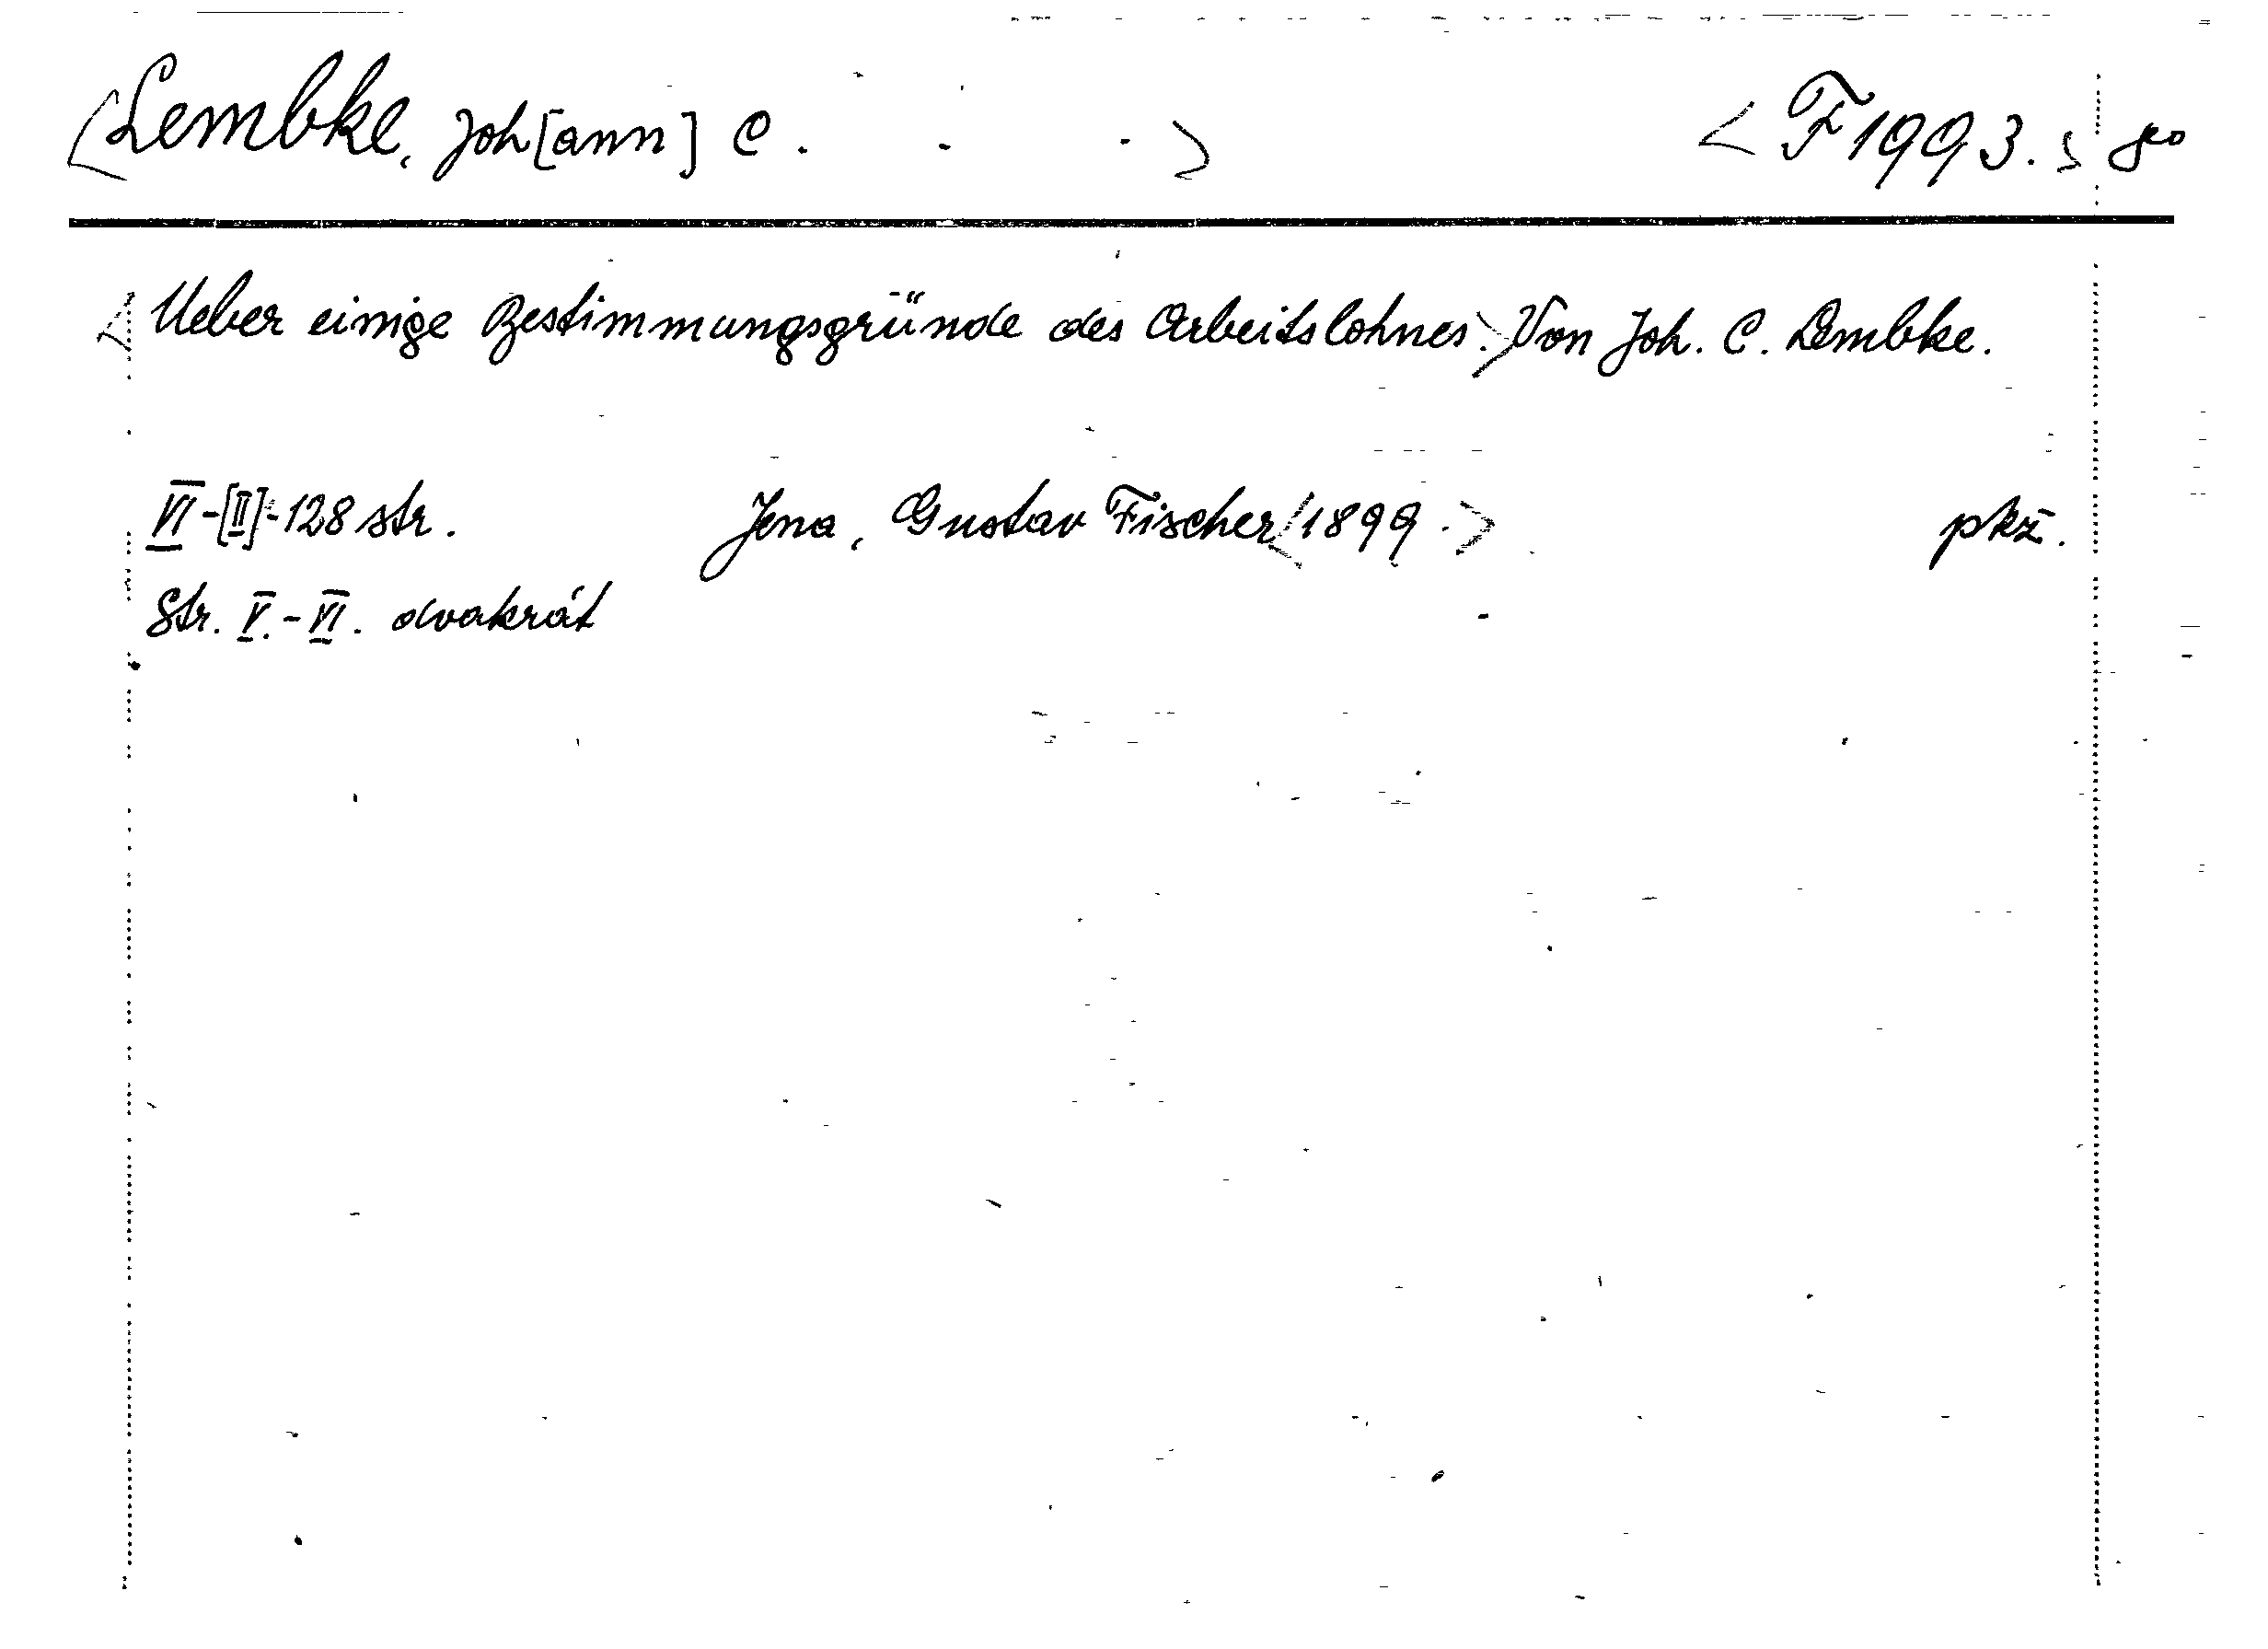 <Lembke, Joh[ann] C. > <F 1993.> 8°
<Ueber einige Bestimmungsgründe des Arbeitslohnes.> Von Joh. C. Lembke.
VI-[II]-128 str. Jena, Gustav Fischer <1899.> pkž.
Str. V.-VI. dvakrát